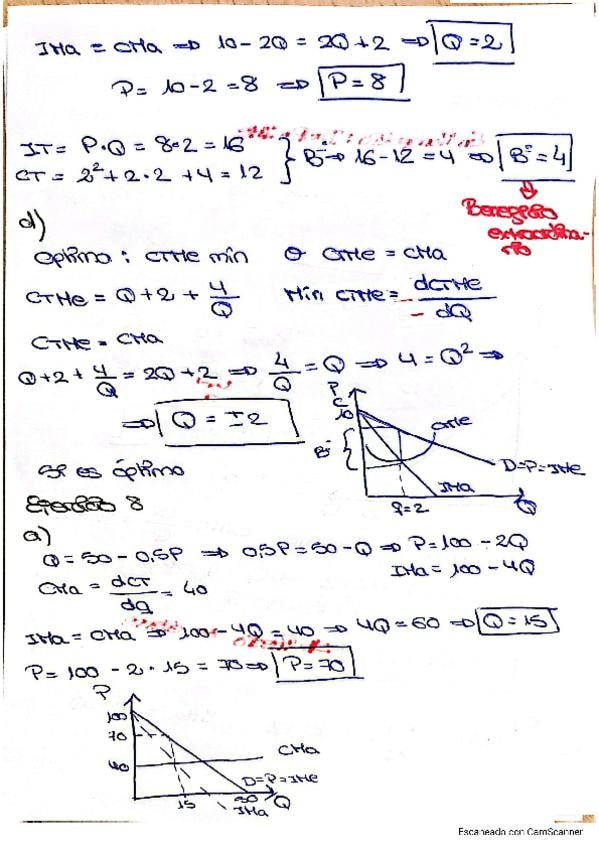 IMa = CMa ⇒ 10 - 2Q = 2Q + 2 ⇒ Q = 2
P = 10 - 2 = 8 ⇒ P = 8
IT = P·Q = 8·2 = 16
CT = 2² + 2·2 + 4 = 12 } Bº ⇒ 16 - 12 = 4 ⇒ Bº = 4
Beneficio
extraordina-
rio
d)
óptimo: CTMe mín o CTMe = CMa
CTMe = Q + 2 + 4/Q Min CTMe = dCTMe/dQ
CTMe = CMa
Q + 2 + 4/Q = 2Q + 2 ⇒ 4/Q = Q ⇒ 4 = Q² ⇒
⇒ Q = ±2
P
C
10
Bº {
CTMe
D=P=IMe
IMa
q=2
Q
Sí es óptimo
Ejercicio 8
a)
Q = 50 - 0,5P ⇒ 0,5P = 50 - Q ⇒ P = 100 - 2Q
IMa = 100 - 4Q
CMa = dCT/dq = 40
IMa = CMa ⇒ 100 - 4Q = 40 ⇒ 4Q = 60 ⇒ Q = 15
P = 100 - 2·15 = 70 ⇒ P = 70
P
100
70
40
CMa
D=P=IMe
15
50
IMa
Q
Escaneado con CamScanner